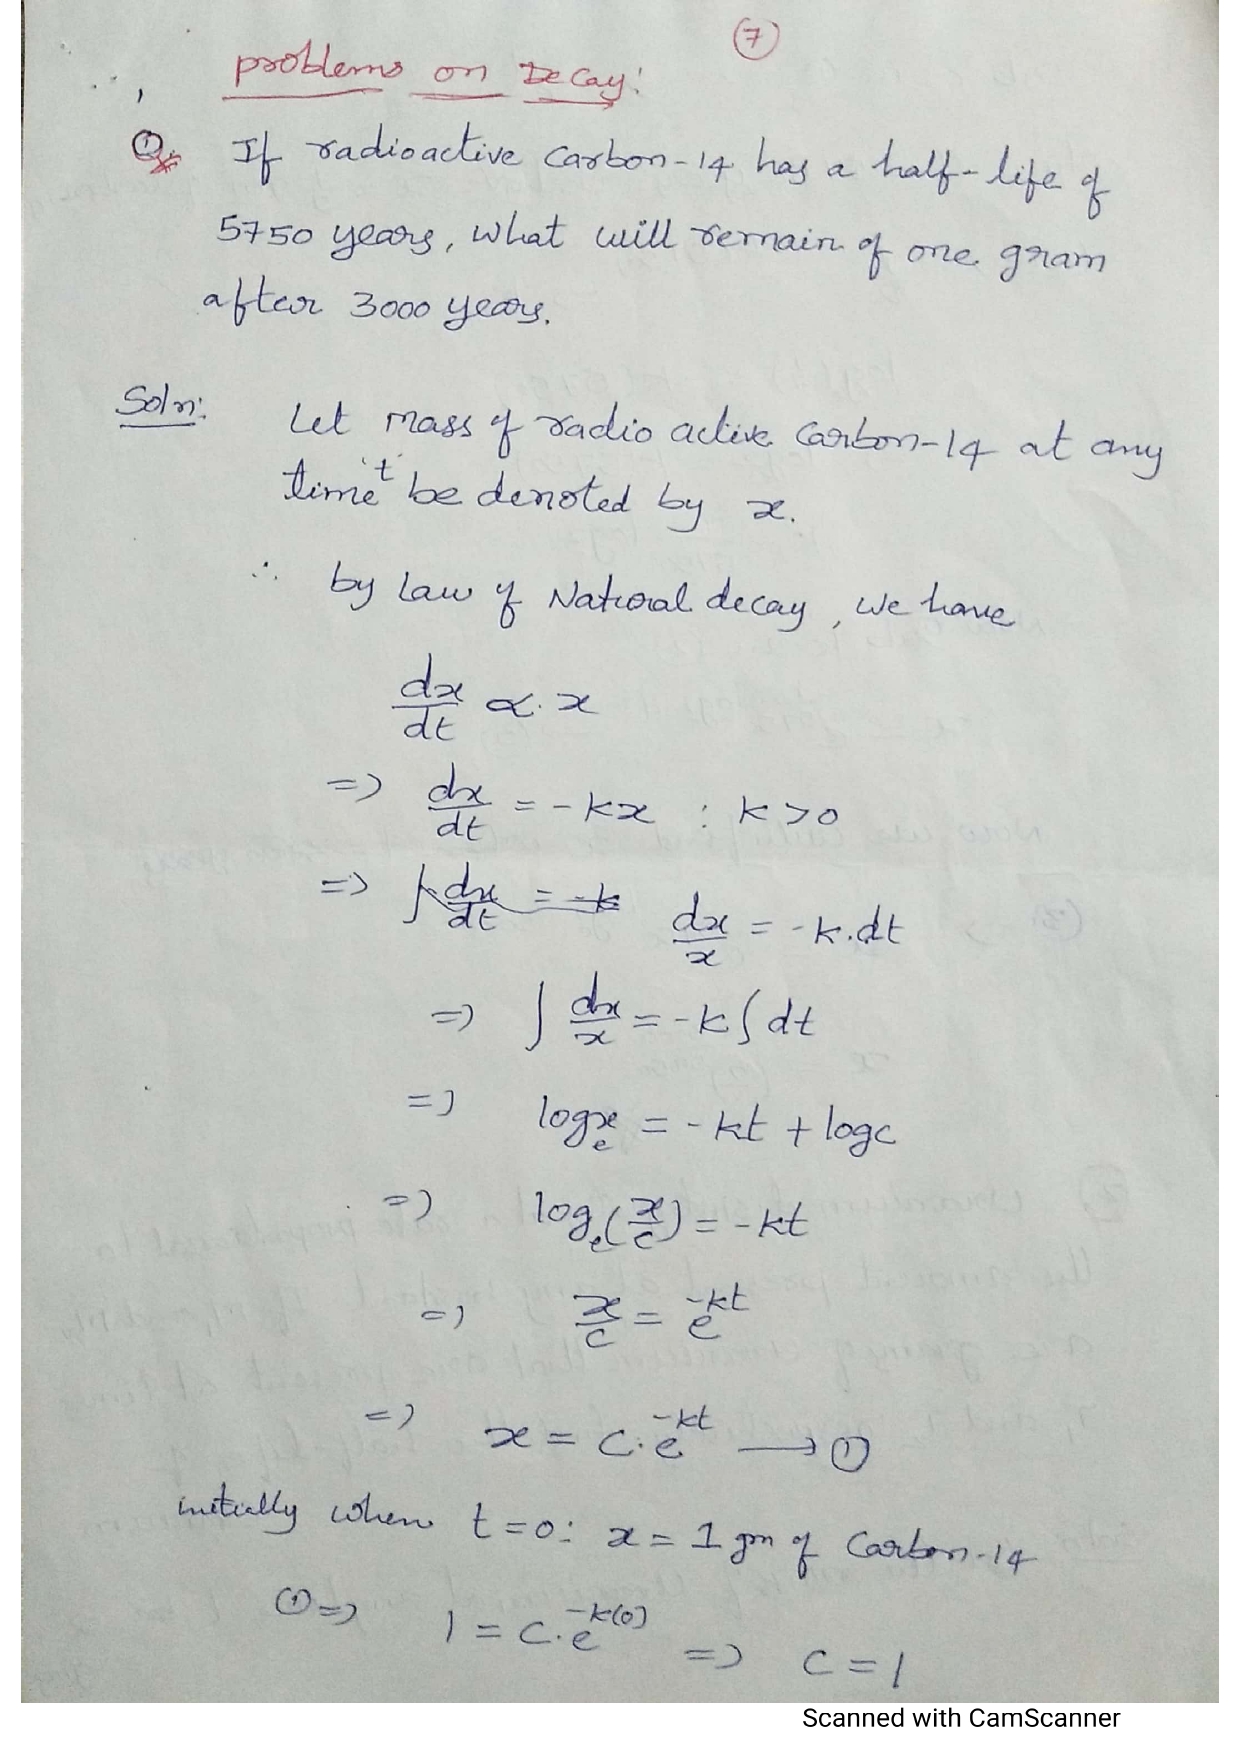 7
problems on Decay:
① If radioactive Carbon-14 has a half-life of
5750 years, what will remain of one gram
after 3000 years.
Soln: Let mass of radio active Carbon-14 at any
time 't' be denoted by x.
∴ by Law of Natural decay, we have
dx/dt ∝ x
=> dx/dt = -kx : k>0
=> ∫ dx/dt = -k dx/x = -k.dt
=> ∫ dx/x = -k ∫ dt
=> logₑx = -kt + logc
=> logₑ(x/c) = -kt
=> x/c = e^-kt
=> x = c.e^-kt → ①
initially when t=0: x = 1 gm of Carbon-14
①=> 1 = c.e^-k(0) => c = 1
Scanned with CamScanner